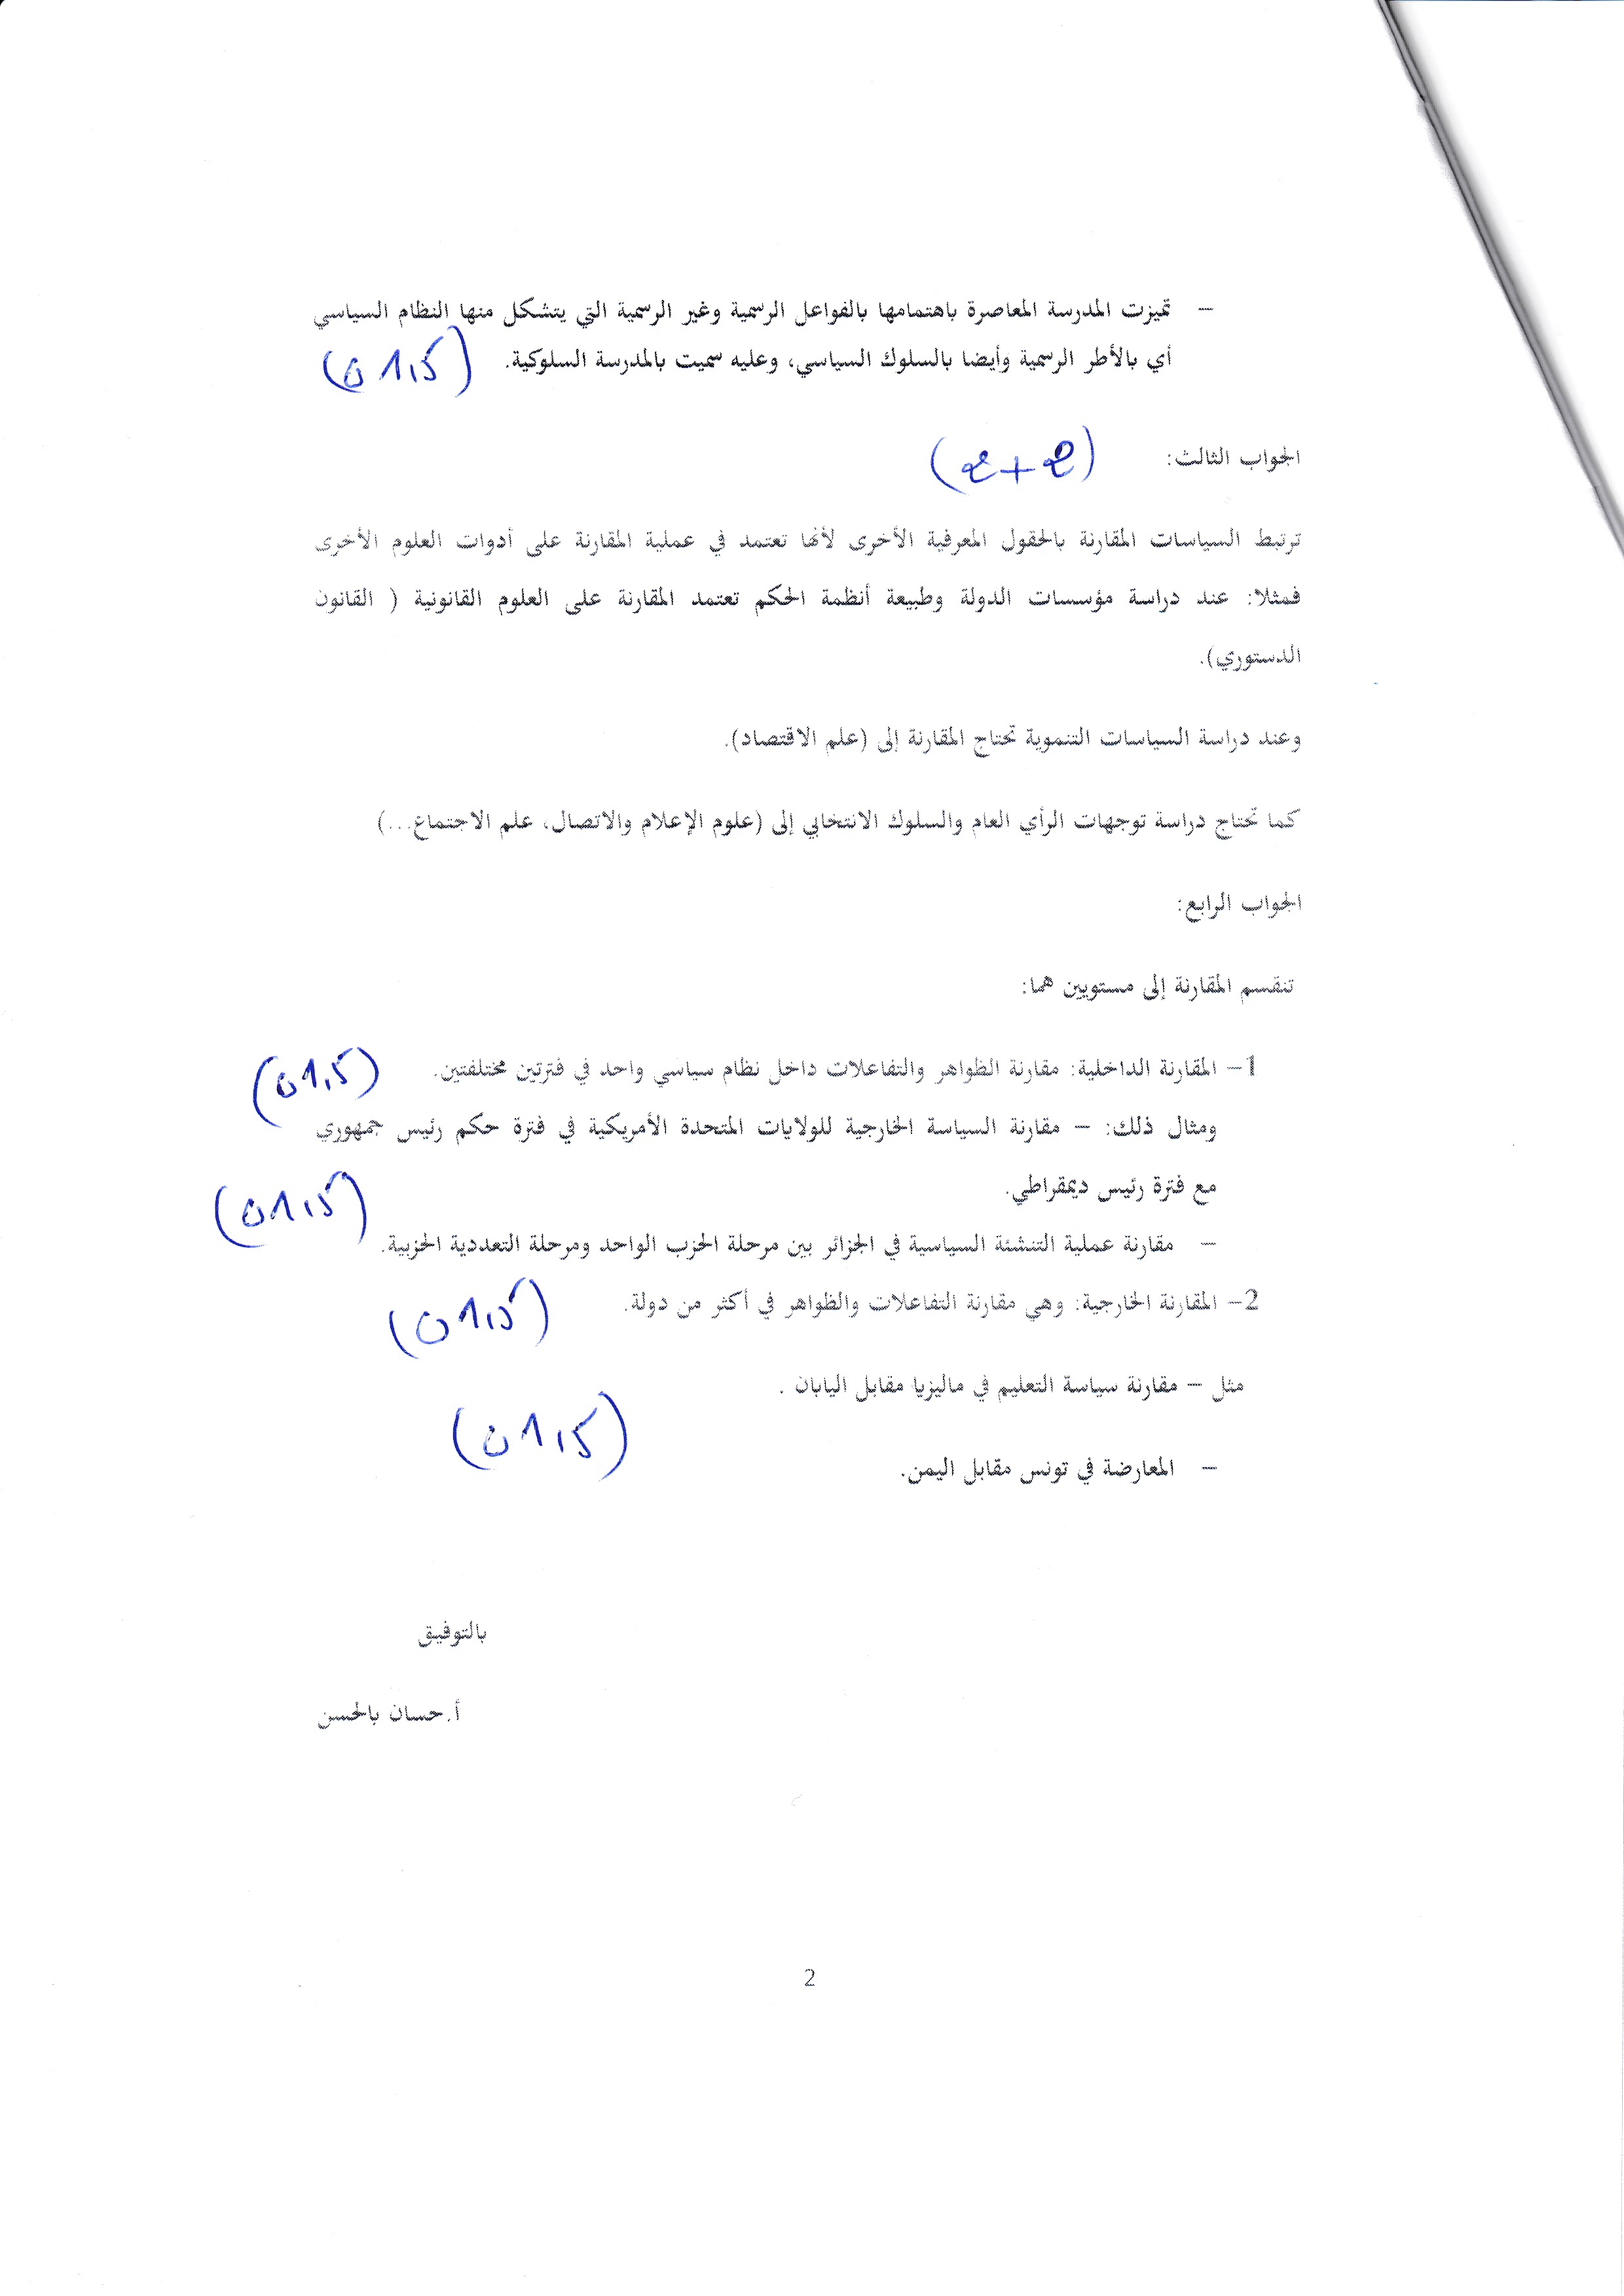 – تميزت المدرسة المعاصرة باهتمامها بالفواعل الرسمية وغير الرسمية التي يتشكل منها النظام السياسي
أي بالأطر الرسمية وأيضا بالسلوك السياسي، وعليه سميت بالمدرسة السلوكية. (01,5)
الجواب الثالث: (2+2)
ترتبط السياسات المقارنة بالحقول المعرفية الأخرى لأنها تعتمد في عملية المقارنة على أدوات العلوم الأخرى
فمثلا: عند دراسة مؤسسات الدولة وطبيعة أنظمة الحكم تعتمد المقارنة على العلوم القانونية ( القانون
الدستوري).
وعند دراسة السياسات التنموية تحتاج المقارنة إلى (علم الاقتصاد).
كما تحتاج دراسة توجهات الرأي العام والسلوك الانتخابي إلى (علوم الإعلام والاتصال، علم الاجتماع...)
الجواب الرابع:
تنقسم المقارنة إلى مستويين هما:
1– المقارنة الداخلية: مقارنة الظواهر والتفاعلات داخل نظام سياسي واحد في فترتين مختلفتين. (01,5)
ومثال ذلك: – مقارنة السياسة الخارجية للولايات المتحدة الأمريكية في فترة حكم رئيس جمهوري
مع فترة رئيس ديمقراطي. (01,5)
– مقارنة عملية التنشئة السياسية في الجزائر بين مرحلة الحزب الواحد ومرحلة التعددية الحزبية.
2– المقارنة الخارجية: وهي مقارنة التفاعلات والظواهر في أكثر من دولة. (01,5)
مثل – مقارنة سياسة التعليم في ماليزيا مقابل اليابان .
(01,5)
– المعارضة في تونس مقابل اليمن.
بالتوفيق
أ.حسان بالحسن
2